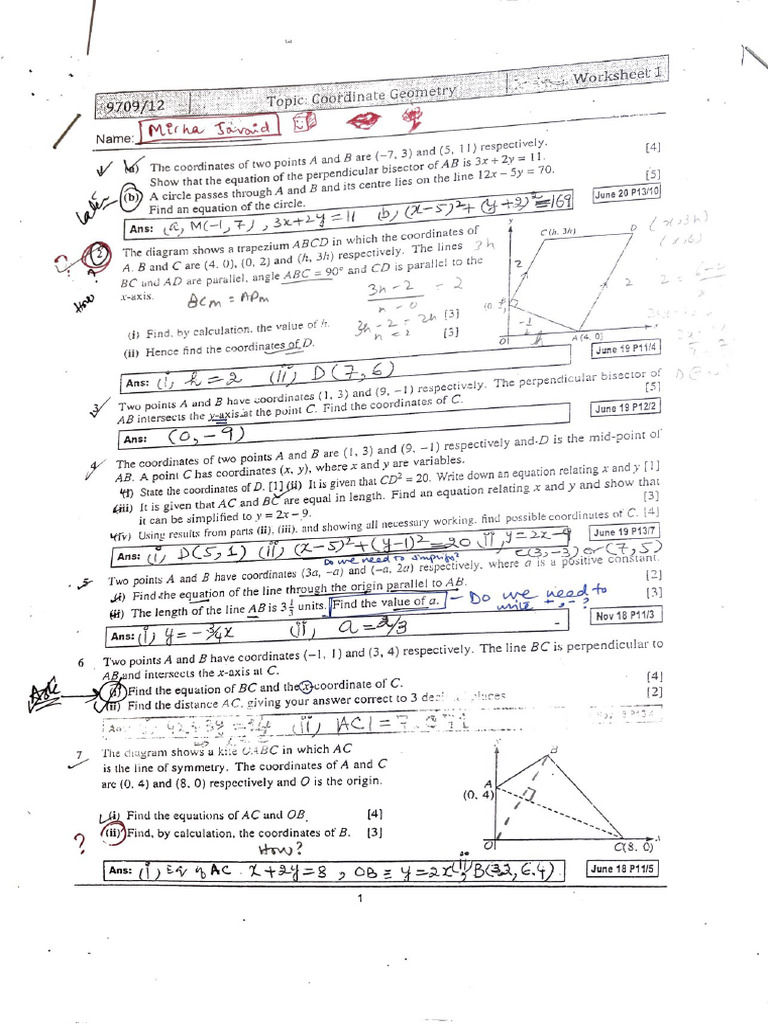 9709/12 Topic: Coordinate Geometry Worksheet 1
Name: Mirha Javaid
(a) The coordinates of two points A and B are (−7, 3) and (5, 11) respectively.
Show that the equation of the perpendicular bisector of AB is 3x + 2y = 11. [4]
Later (b) A circle passes through A and B and its centre lies on the line 12x − 5y = 70. [5]
Find an equation of the circle. June 20 P13/10
Ans: (a, M(-1, 7), 3x+2y=11 b, (x-5)²+(y+2)²=169
? 2 The diagram shows a trapezium ABCD in which the coordinates of
A, B and C are (4, 0), (0, 2) and (h, 3h) respectively. The lines 3h
How? BC and AD are parallel, angle ABC = 90° and CD is parallel to the
x-axis. BCm = ADm
3h-2 = 2
h-0
(i) Find, by calculation, the value of h. [3]
3h-2=2h
h=2
(ii) Hence find the coordinates of D. [3]
y
C (h, 3h)
D
(x,3h)
(x,6)
2
2
-1
O
A (4, 0)
x
June 19 P11/4
Ans: (i, h=2 (ii) D(7,6)
3 Two points A and B have coordinates (1, 3) and (9, −1) respectively. The perpendicular bisector of
AB intersects the y-axis at the point C. Find the coordinates of C. [5]
June 19 P12/2
Ans: (0, -9)
4 The coordinates of two points A and B are (1, 3) and (9, −1) respectively and D is the mid-point of
AB. A point C has coordinates (x, y), where x and y are variables.
(i) State the coordinates of D. [1] (ii) It is given that CD² = 20. Write down an equation relating x and y [1]
(iii) It is given that AC and BC are equal in length. Find an equation relating x and y and show that
it can be simplified to y = 2x − 9. [3]
(iv) Using results from parts (ii), (iii), and showing all necessary working, find possible coordinates of C. [4]
June 19 P13/7
Ans: (i, D(5,1) (ii, (x-5)²+(y-1)²=20 ii, y=2x-9
C(3,-3) or (7,5)
Do we need to simplify?
5 Two points A and B have coordinates (3a, −a) and (−a, 2a) respectively, where a is a positive constant.
(i) Find the equation of the line through the origin parallel to AB. [2]
(ii) The length of the line AB is 3⅓ units. Find the value of a. – Do we need to [3]
write +,-?
Nov 18 P11/3
Ans: (i, y=-3/4x (ii, a=2/3
6 Two points A and B have coordinates (−1, 1) and (3, 4) respectively. The line BC is perpendicular to
AB and intersects the x-axis at C.
Ask (i) Find the equation of BC and the x-coordinate of C. [4]
(ii) Find the distance AC, giving your answer correct to 3 decimal places [2]
(ii, |AC| = 7.071
7 The diagram shows a kite OABC in which AC
is the line of symmetry. The coordinates of A and C
are (0, 4) and (8, 0) respectively and O is the origin.
(i) Find the equations of AC and OB. [4]
? (ii) Find, by calculation, the coordinates of B. [3]
How?
B
A
(0, 4)
O
C(8, 0)
June 18 P11/5
Ans: (i, Eq of AC x+2y=8, OB = y=2x (ii, B(3.2, 6.4).
1